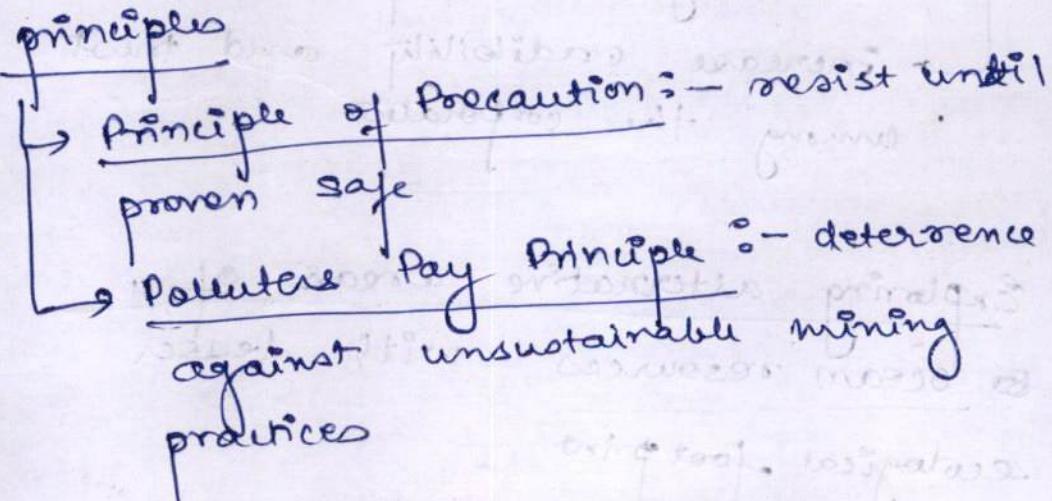 principles
→ Principle of Precaution :- resist until
proven safe
→ Polluters Pay Principle :- deterrence
against unsustainable mining
practices